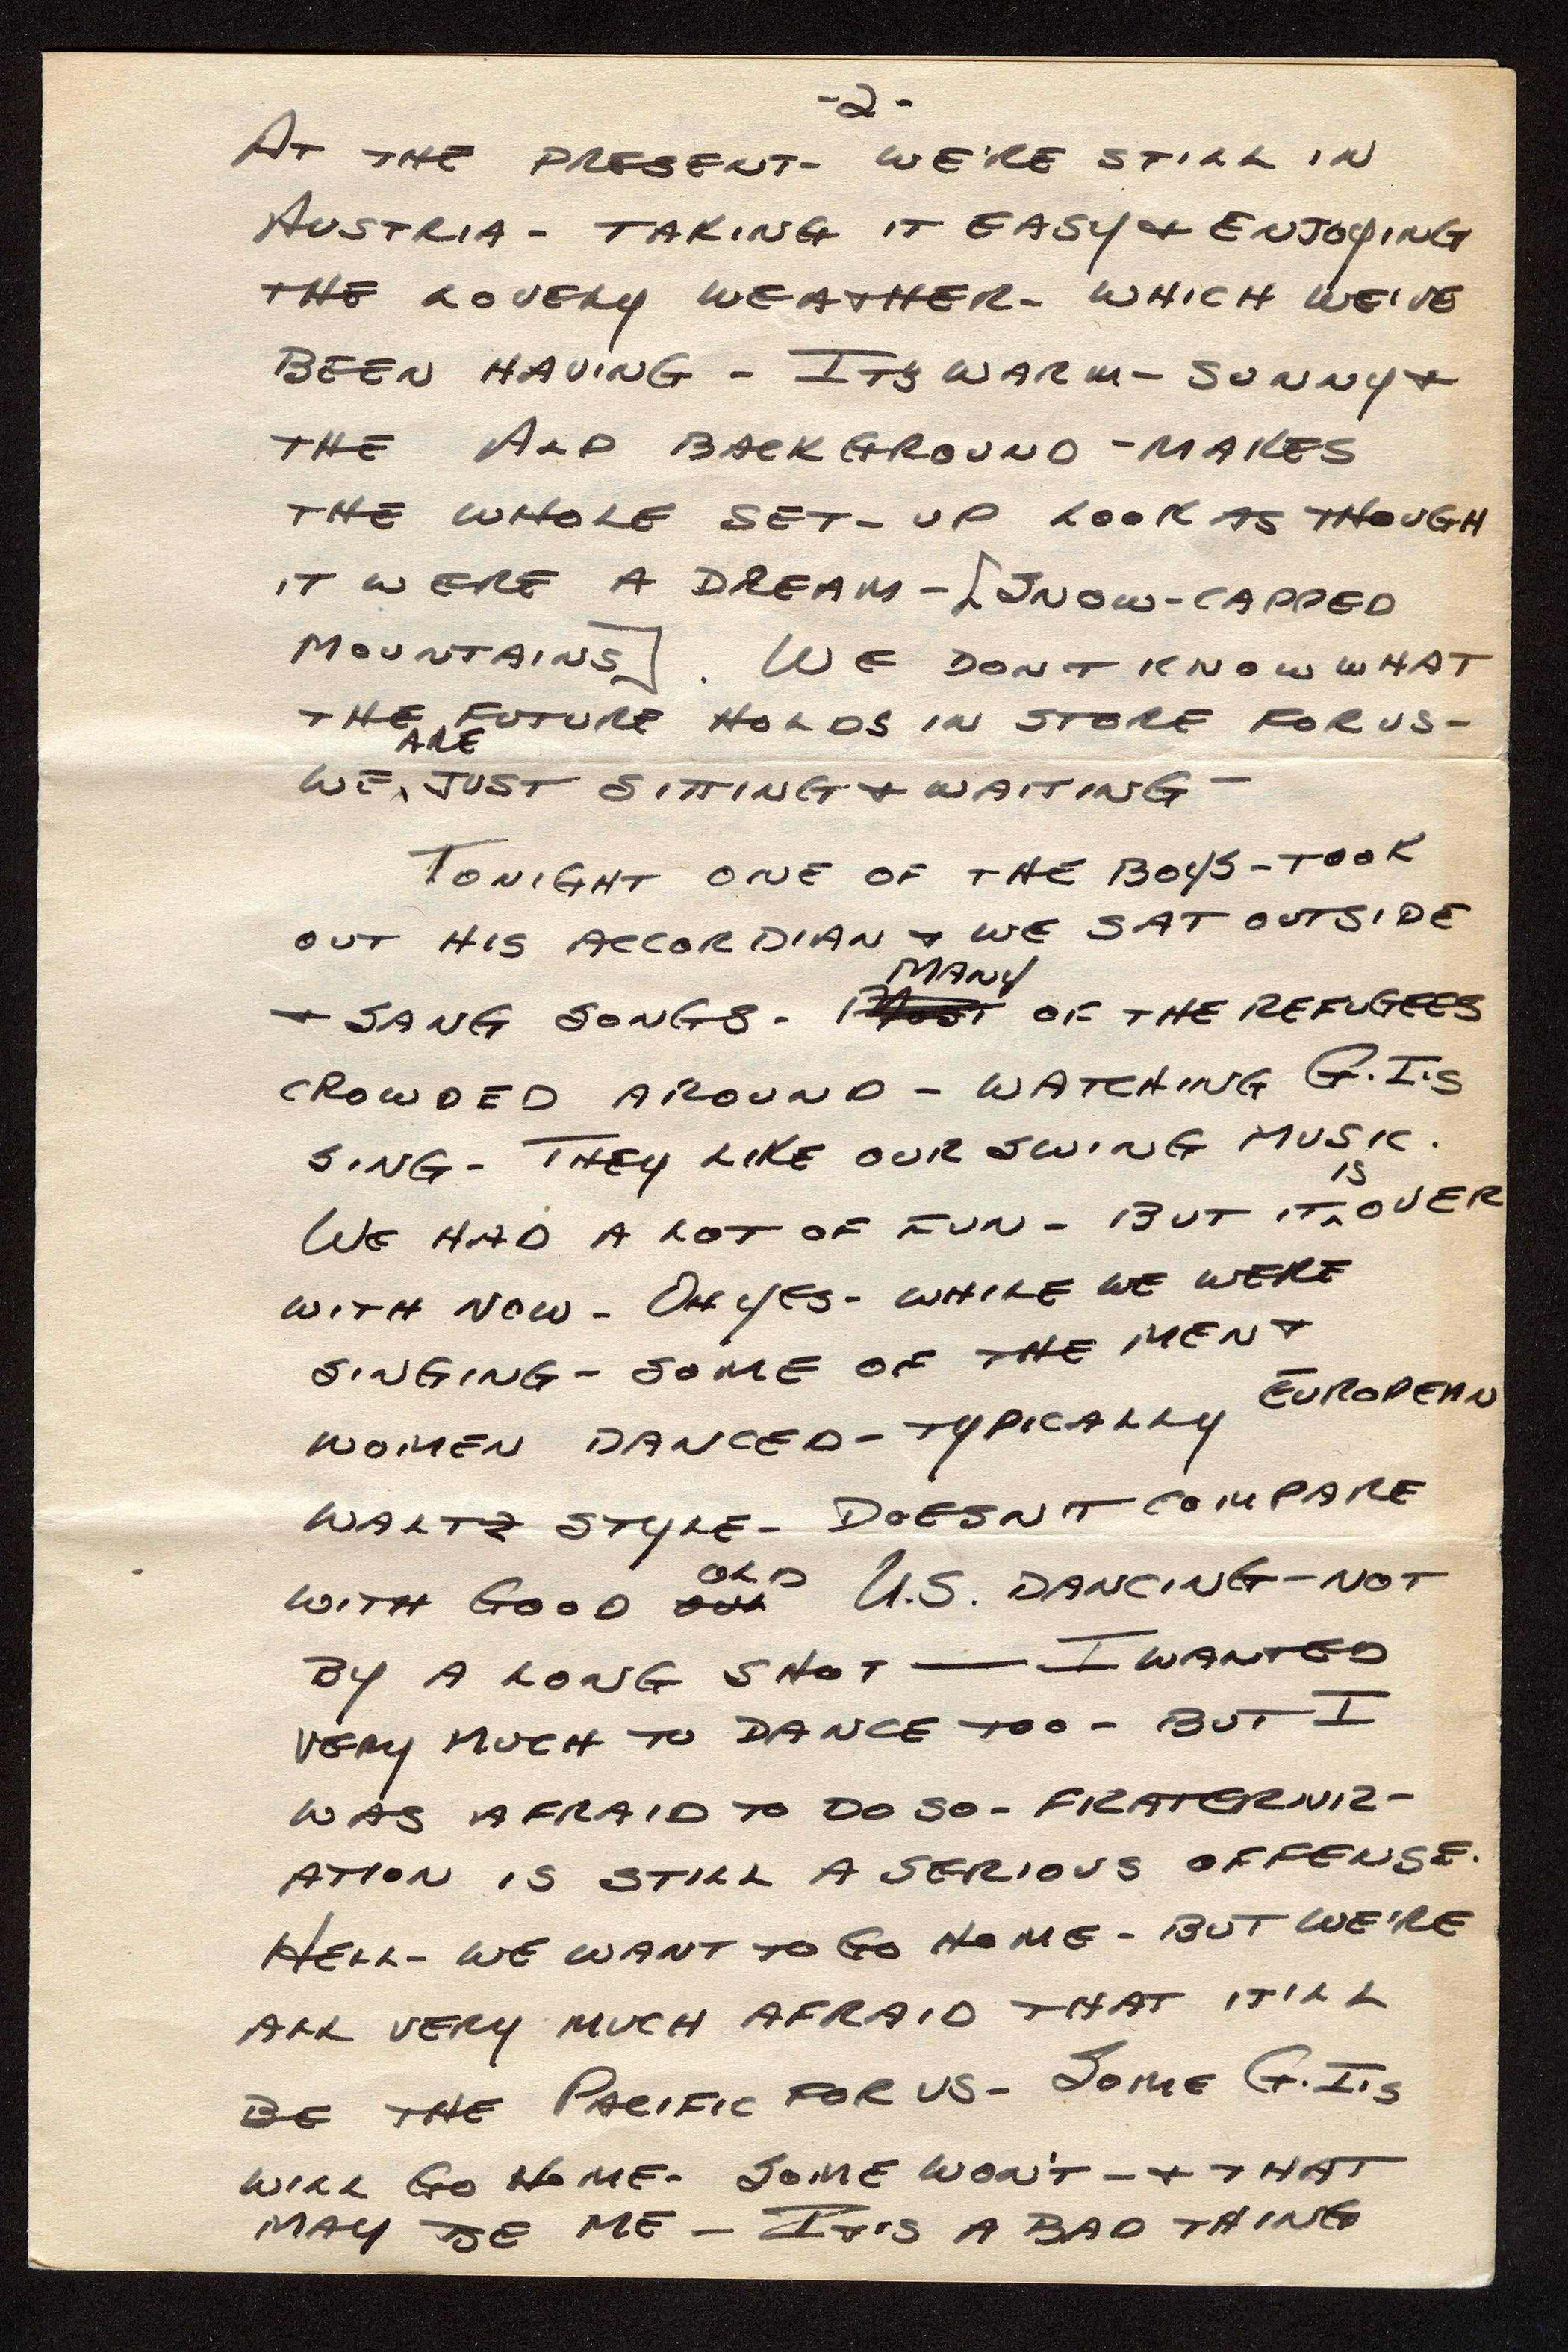 -2-
AT THE PRESENT- WE'RE STILL IN
AUSTRIA - TAKING IT EASY & ENJOYING
THE LOVELY WEATHER- WHICH WE'VE
BEEN HAVING - IT'S WARM - SUNNY &
THE ALP BACKGROUND - MAKES
THE WHOLE SET-UP LOOK AS THOUGH
IT WERE A DREAM - [SNOW-CAPPED
MOUNTAINS]. WE DON'T KNOW WHAT
THE FUTURE HOLDS IN STORE FOR US-
WE ARE JUST SITTING & WAITING -
TONIGHT ONE OF THE BOYS - TOOK
OUT HIS ACCORDIAN & WE SAT OUTSIDE
& SANG SONGS. MANY OF THE REFUGEES
CROWDED AROUND - WATCHING G.I.s
SING - THEY LIKE OUR SWING MUSIC.
WE HAD A LOT OF FUN - BUT IT IS OVER
WITH NOW - OH YES - WHILE WE WERE
SINGING - SOME OF THE MEN &
WOMEN DANCED - TYPICALLY EUROPEAN
WALTZ STYLE - DOESN'T COMPARE
WITH GOOD OLD U.S. DANCING - NOT
BY A LONG SHOT — I WANTED
VERY MUCH TO DANCE TOO - BUT I
WAS AFRAID TO DO SO - FRATERNIZ-
ATION IS STILL A SERIOUS OFFENSE.
HELL - WE WANT TO GO HOME - BUT WE'RE
ALL VERY MUCH AFRAID THAT IT'LL
BE THE PACIFIC FOR US - SOME G.I.'s
WILL GO HOME - SOME WON'T - & THAT
MAY BE ME - IT'S A BAD THING